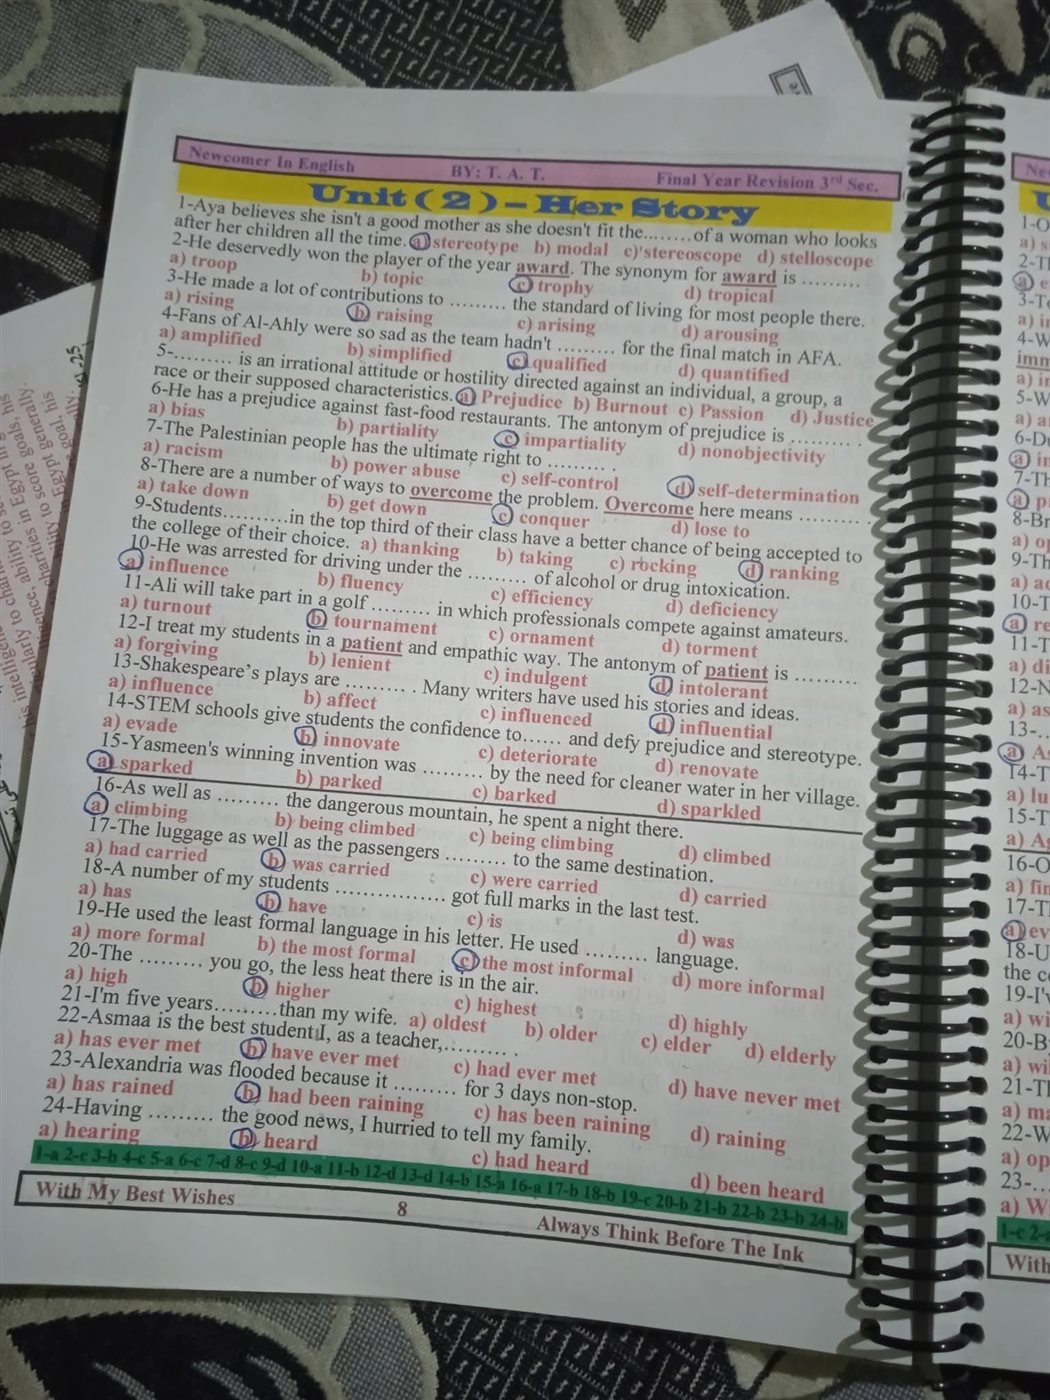 Newcomer In English BY: T. A. T. Final Year Revision 3rd Sec.
Unit ( 2 ) – Her Story
1-Aya believes she isn't a good mother as she doesn't fit the........of a woman who looks
after her children all the time. a) stereotype b) modal c)'stereoscope d) stelloscope
2-He deservedly won the player of the year award. The synonym for award is .........
a) troop b) topic c) trophy d) tropical
3-He made a lot of contributions to ......... the standard of living for most people there.
a) rising b) raising c) arising d) arousing
4-Fans of Al-Ahly were so sad as the team hadn't ......... for the final match in AFA.
a) amplified b) simplified c) qualified d) quantified
5-......... is an irrational attitude or hostility directed against an individual, a group, a
race or their supposed characteristics. a) Prejudice b) Burnout c) Passion d) Justice
6-He has a prejudice against fast-food restaurants. The antonym of prejudice is .........
a) bias b) partiality c) impartiality d) nonobjectivity
7-The Palestinian people has the ultimate right to ......... .
a) racism b) power abuse c) self-control d) self-determination
8-There are a number of ways to overcome the problem. Overcome here means ......... .
a) take down b) get down c) conquer d) lose to
9-Students..........in the top third of their class have a better chance of being accepted to
the college of their choice. a) thanking b) taking c) rocking d) ranking
10-He was arrested for driving under the ......... of alcohol or drug intoxication.
a) influence b) fluency c) efficiency d) deficiency
11-Ali will take part in a golf ......... in which professionals compete against amateurs.
a) turnout b) tournament c) ornament d) torment
12-I treat my students in a patient and empathic way. The antonym of patient is .........
a) forgiving b) lenient c) indulgent d) intolerant
13-Shakespeare's plays are ......... . Many writers have used his stories and ideas.
a) influence b) affect c) influenced d) influential
14-STEM schools give students the confidence to...... and defy prejudice and stereotype.
a) evade b) innovate c) deteriorate d) renovate
15-Yasmeen's winning invention was ......... by the need for cleaner water in her village.
a) sparked b) parked c) barked d) sparkled
16-As well as ......... the dangerous mountain, he spent a night there.
a) climbing b) being climbed c) being climbing d) climbed
17-The luggage as well as the passengers ......... to the same destination.
a) had carried b) was carried c) were carried d) carried
18-A number of my students ................ got full marks in the last test.
a) has b) have c) is d) was
19-He used the least formal language in his letter. He used ......... language.
a) more formal b) the most formal c) the most informal d) more informal
20-The ......... you go, the less heat there is in the air.
a) high b) higher c) highest d) highly
21-I'm five years.........than my wife. a) oldest b) older c) elder d) elderly
22-Asmaa is the best student I, as a teacher,......... .
a) has ever met b) have ever met c) had ever met d) have never met
23-Alexandria was flooded because it ......... for 3 days non-stop.
a) has rained b) had been raining c) has been raining d) raining
24-Having ......... the good news, I hurried to tell my family.
a) hearing b) heard c) had heard d) been heard
1-a 2-c 3-b 4-c 5-a 6-c 7-d 8-c 9-d 10-a 11-b 12-d 13-d 14-b 15-a 16-a 17-b 18-b 19-c 20-b 21-b 22-b 23-b 24-b
With My Best Wishes 8 Always Think Before The Ink